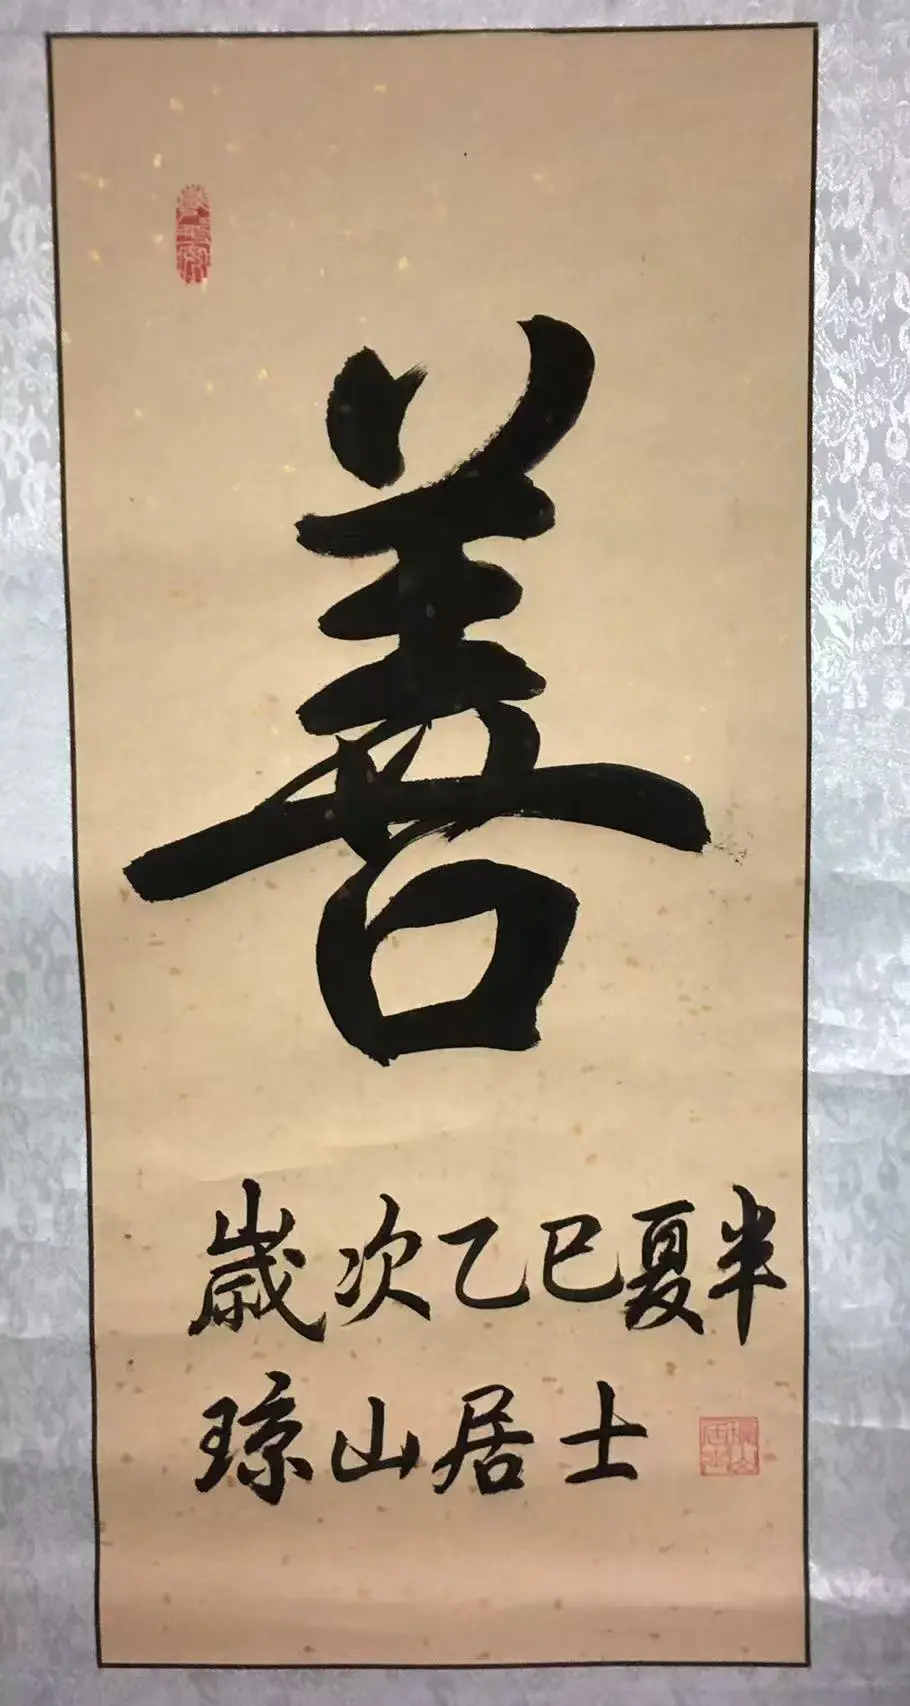 善
歲次乙巳夏半
琼山居士